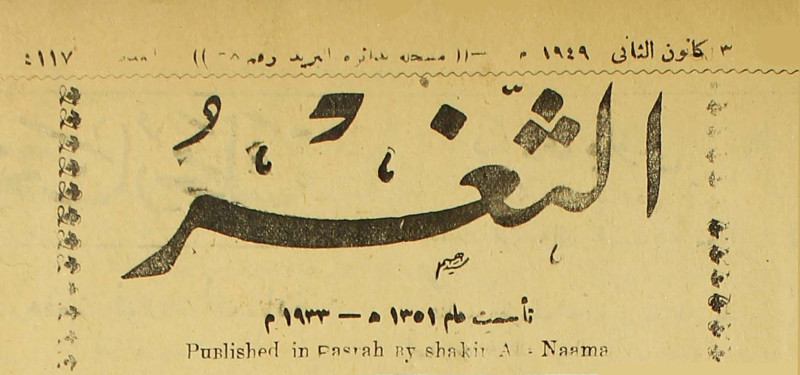 ٣ كانون الثاني ١٩٤٩ م ــ (( مسجله بدائرة البريد رقم ٠٨ )) العدد ٤١١٧
الثَّغْرُ
تأسست عام ١٣٥١ ه — ١٩٣٣ م
Published in Basrah By shakir Al - Naama